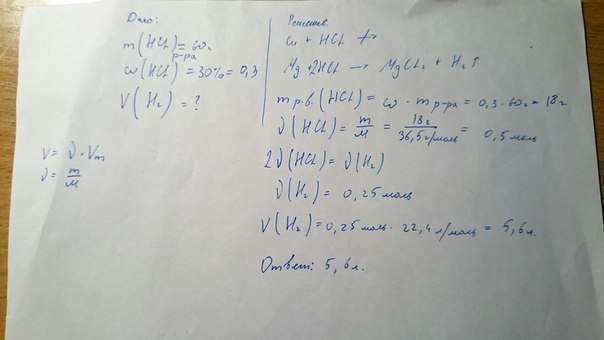 Дано:
m(HCl) = 60г
р-ра
ω(HCl) = 30% = 0,3
V(H₂) = ?
V = ν · Vm
ν = m/M
Решение
Cu + HCl ↛
Mg + 2HCl → MgCl₂ + H₂↑
m р.в. (HCl) = ω · m р-ра = 0,3 · 60г = 18г
ν(HCl) = m/M = 18г/36,5г/моль = 0,5 моль
2ν(HCl) = ν(H₂)
ν(H₂) = 0,25 моль
V(H₂) = 0,25 моль · 22,4 л/моль = 5,6 л.
Ответ: 5,6 л.